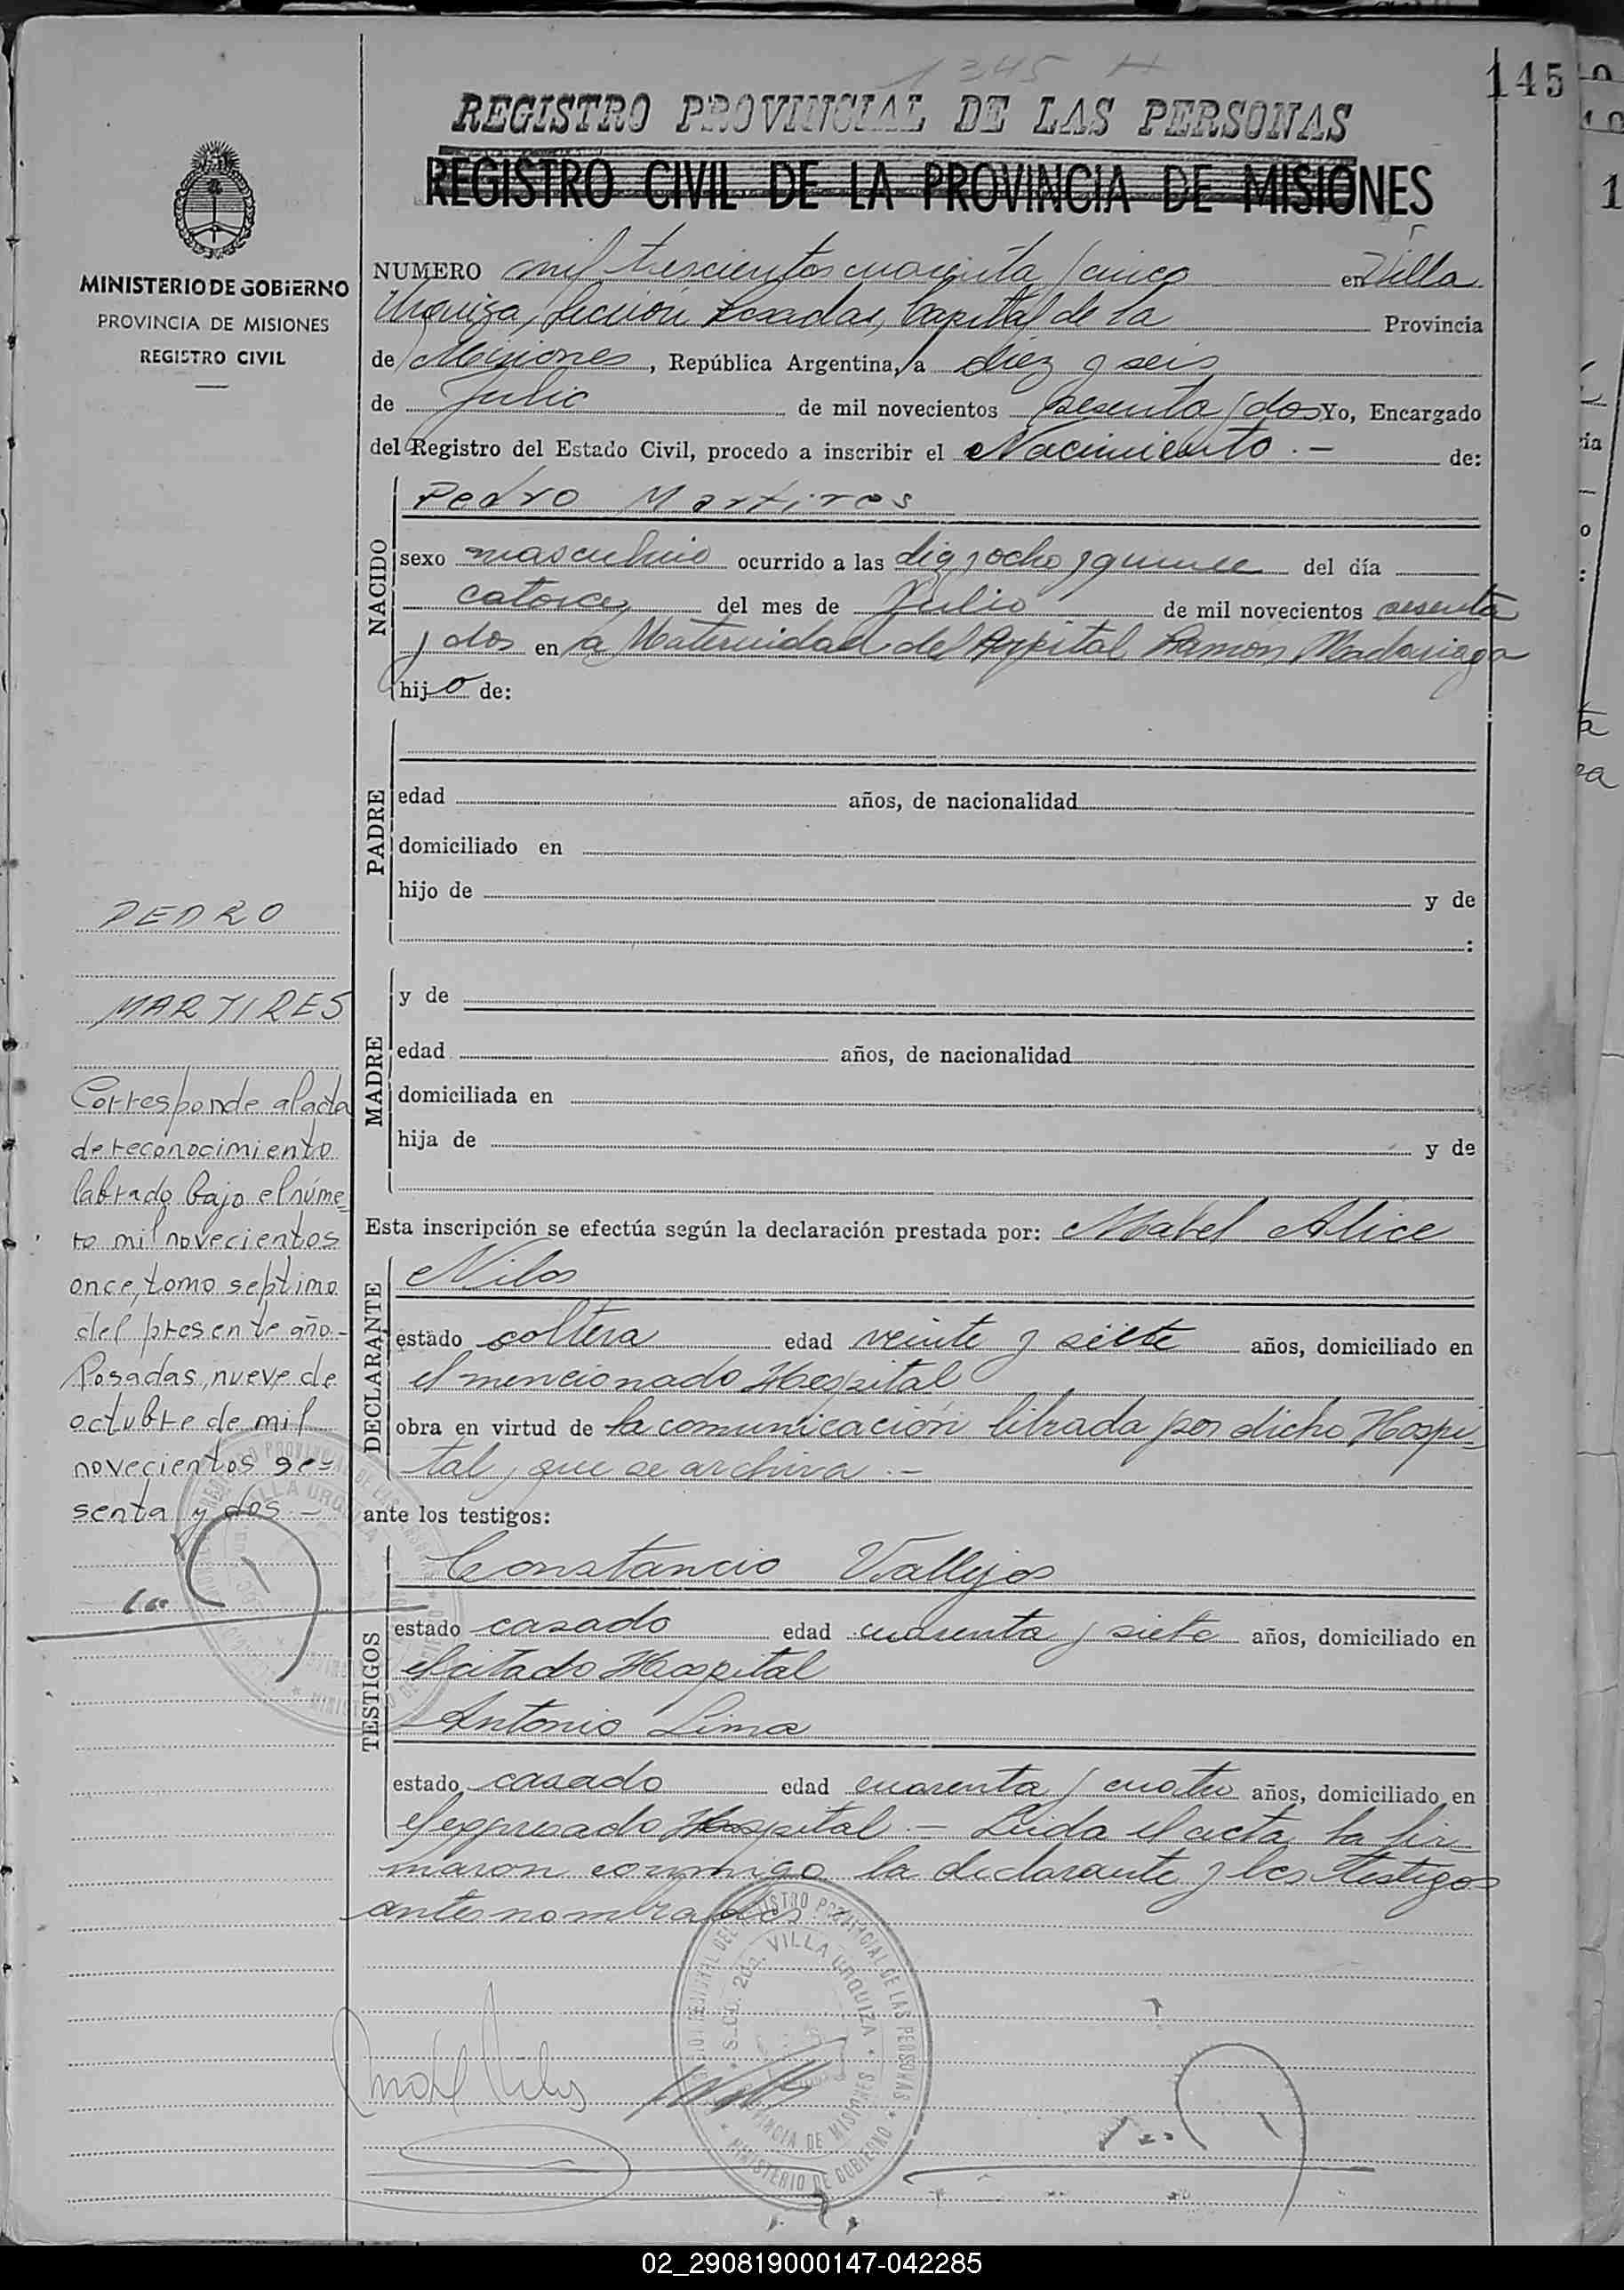 1345 H
145
REGISTRO PROVINCIAL DE LAS PERSONAS
REGISTRO CIVIL DE LA PROVINCIA DE MISIONES
MINISTERIO DE GOBIERNO
PROVINCIA DE MISIONES
REGISTRO CIVIL
NUMERO mil trescientos cuarenta y cinco en Villa
Urquiza, Sección Posadas, Capital de la Provincia
de Misiones, República Argentina, a diez y seis
de Julio de mil novecientos sesenta y dos Yo, Encargado
del Registro del Estado Civil, procedo a inscribir el Nacimiento.- de:
NACIDO
Pedro Martires
sexo masculino ocurrido a las diez y ocho y quince del día
catorce del mes de Julio de mil novecientos sesenta
y dos en la Maternidad del Hospital Ramón Madariaga
hijo de:
PADRE
edad años, de nacionalidad
domiciliado en
hijo de y de
:
MADRE
y de
edad años, de nacionalidad
domiciliada en
hija de y de
Esta inscripción se efectúa según la declaración prestada por: Mabel Alice
DECLARANTE
Nilos
estado soltera edad veinte y siete años, domiciliado en
el mencionado Hospital
obra en virtud de la comunicación librada por dicho Hospi
tal, que se archiva.-
ante los testigos:
TESTIGOS
Constancio Vallejos
estado casado edad cuarenta y siete años, domiciliado en
el citado Hospital
Antonio Lima
estado casado edad cuarenta y cuatro años, domiciliado en
el expresado Hospital.- Leida el acta, la fir
maron conmigo la declarante y los testigos
antes nombrados
PEDRO
MARTIRES
Corresponde al acta
de reconocimiento
labrado bajo el núme
ro mil novecientos
once, tomo septimo
del presente año.-
Posadas, nueve de
octubre de mil
novecientos se=
senta y dos.-
REGISTRO PROVINCIAL DE LAS PERSONAS
SECC. 2da. VILLA URQUIZA
PROVINCIA DE MISIONES
MINISTERIO DE GOBIERNO
02_290819000147-042285